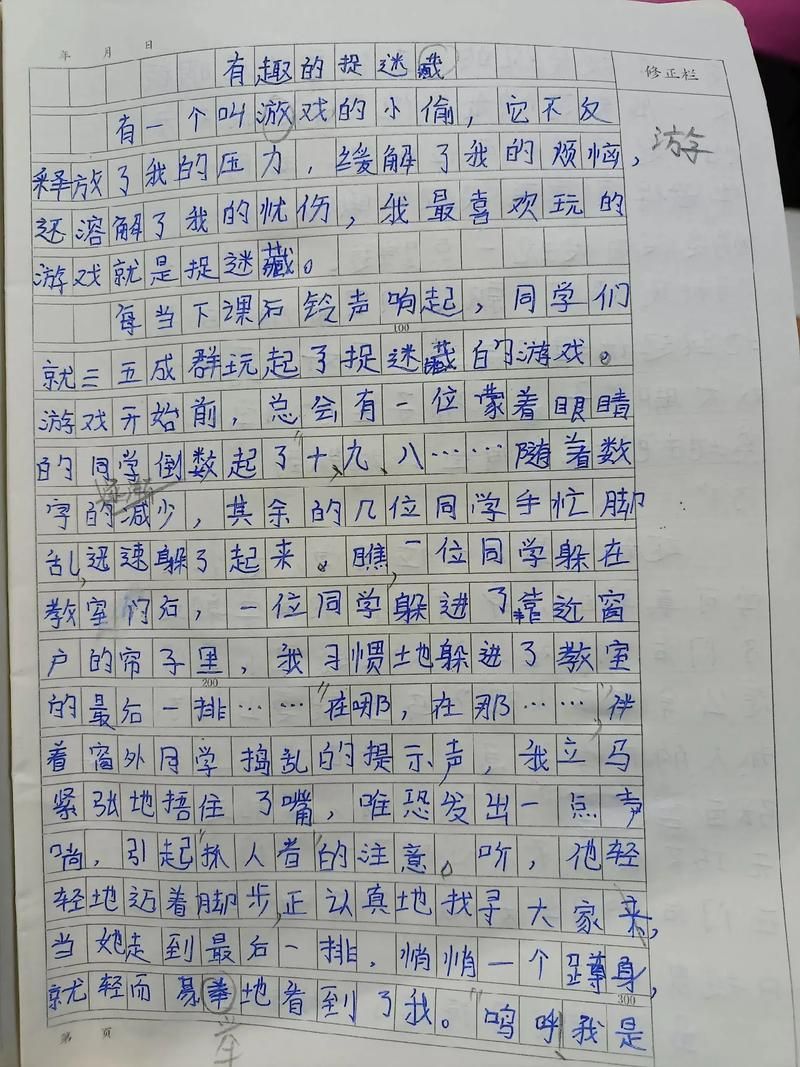 年 月 日
有趣的捉迷藏
修正栏
有一个叫游戏的小偷，它不反
游
释放了我的压力，缓解了我的烦恼，
还溶解了我的忧伤，我最喜欢玩的
游戏就是捉迷藏。
每当下课后铃声响起，同学们
100
就三五成群玩起了捉迷藏的游戏。
游戏开始前，总会有一位蒙着眼睛
的同学倒数起了“十、九、八……随着数
字的减少，其余的几位同学手忙脚
乱，迅速躲了起来。瞧，一位同学躲在
教室门后，一位同学躲进了靠近窗
户的帘子里，我习惯地躲进了教室
200
的最后一排……“在哪，在那……”伴
着窗外同学捣乱的提示声，我立马
紧张地捂住了嘴，唯恐发出一点声
响，引起“抓人者”的注意。听，他轻
轻地迈着脚步，正认真地找寻大家来，
当她走到最后一排，悄悄一个蹲身，
300
就轻而易举地看到了我。“呜呼，我是
第 页
举